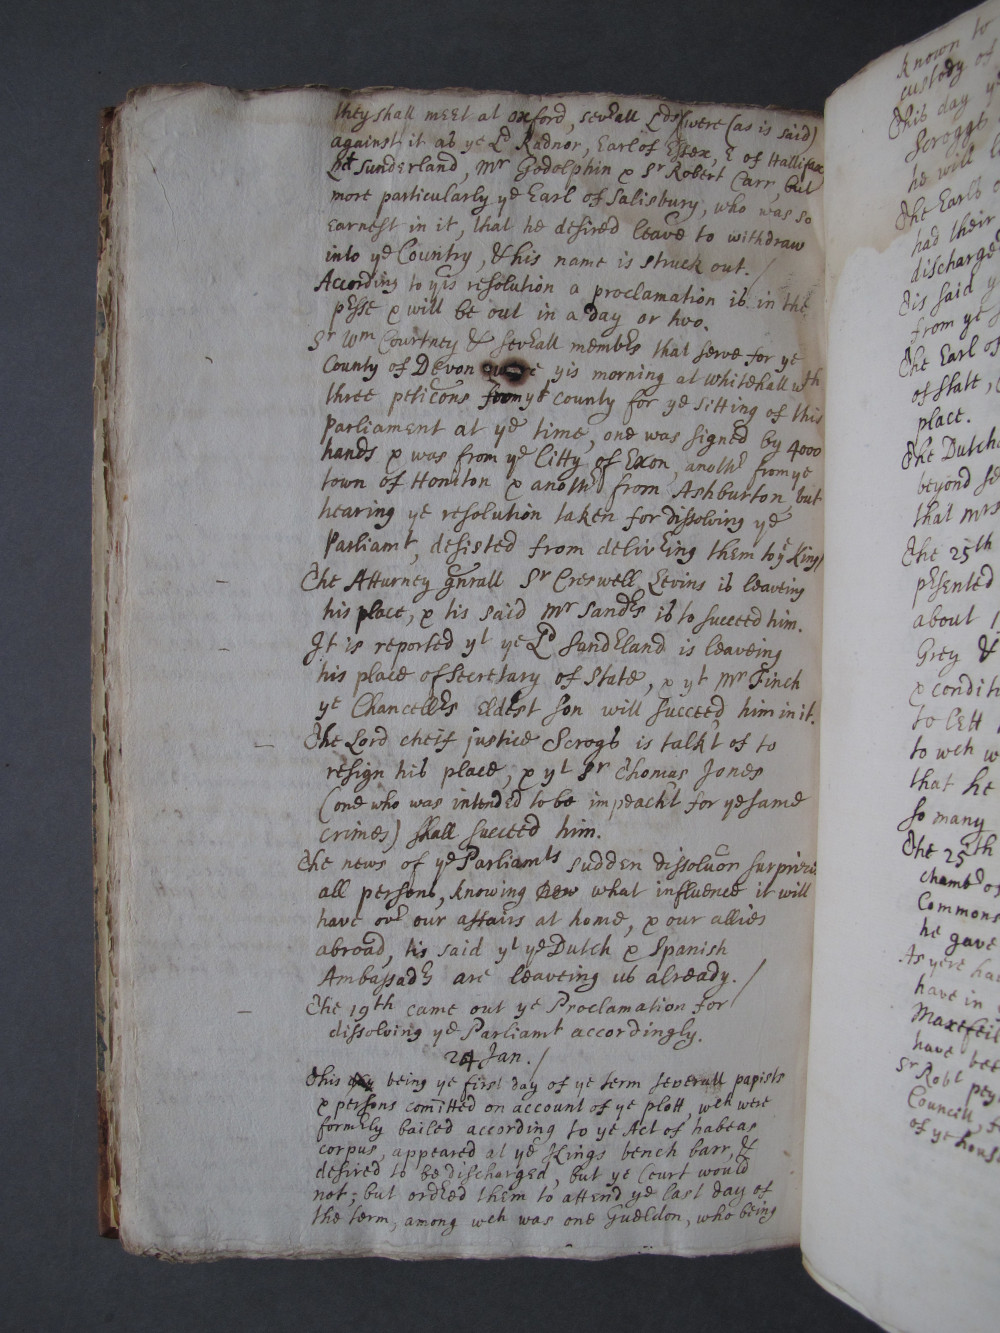 they shall meet at oxford, sevẽall Lds (were (as is said)
against it as ye Ld Radnor, Earl of Essex, E of Hallifax
Ld Sunderland, Mr Godolphin & Sr Robert Carr, but
more particularly ye Earl of Salisbury, who was so
earnest in it, that he desired leave to withdraw
into ye Country, & his name is struck out. /
According to yis resolution a proclamation is in the
pesse & will be out in a day or two.
Sr Wm Courtney & sevẽall membẽs that serve for ye
County of Devon were yis morning at whitehall wth
three peticons from ye county for ye sitting of this
Parliament at ye time, one was signed by 4000
hands & was from ye Citty of Exon, anothr from ye
town of Honiton & anothr from Ashburton but
hearing ye resolution taken for dissolving ye
Parliamt, desisted from delivẽing them to ye King/
The Atturney gnrall Sr Creswell Levins is leaveing
his place, & tis said Mr Sandẽs is to succeed him.
It is reported yt ye Ld Sundẽland is leaveing
his place of Secretary of State, & yt Mr Finch
ye Chancellẽs eldest son will succeed him in it.
The Lord cheif justice Scrogs is talkt of to
resign his place, & yt Sr Thomas Jones
(one who was intended to be impeacht for ye same
crimes) shall succeed him.
The news of ye Parliamts sudden dissoluon surprizes
all persons, knowing new what influence it will
have ovẽ our affairs at home, & our allies
abroad, tis said yt ye Dutch & Spanish
Ambassadẽs are leaveing us already. /
The 19th came out ye Proclamation for
dissolving ye Parliamt accordingly.
24 Jan. /
This day being ye first day of ye term severall papists
& persons comitted on account of ye plott, wch were
formẽly bailed according to ye Act of habeas
corpus, appeared at ye Kings bench barr, &
desired to be discharged, but ye Court would
not; but ordẽed them to attend ye last day of
the term, among wch was one Gueldon, who being
known to
custody of
This day
Scroggs
he will
The Earls
had their
discharged
Tis said
from ye
The Earl of
of State,
place.
The Dutch
beyond
that Mrs
The 25th
pesented
about
Grey &
& conditi
to lett
to wch w
that he
so many
The 25th
chambẽ of
Commons
he gave
As yere ha
have in
Maxefeil
have bee
Sr Robt pey
Councill,
of ye house